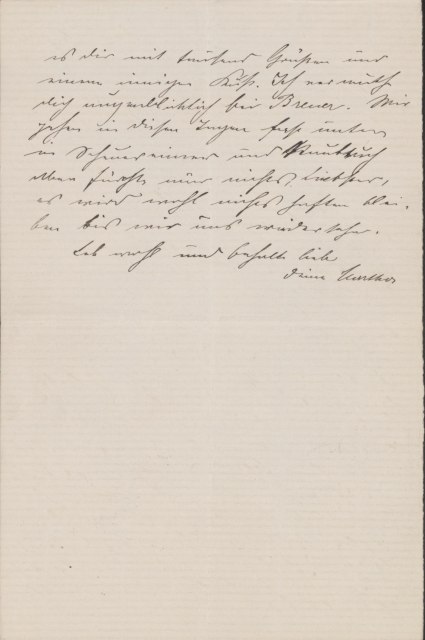 es dir mit tausend Grüßen und
einem innigen Kuß. Ich vermuthe
dich augenblicklich bei Breuer. Wir
gehen in diesen Tagen fast unter
in Scheuereimer und
aber fürchte nur nichts, Liebster,
es wird wohl nichts haften blei-
ben bis wir uns wiedersehn.
Leb wohl und behalte lieb
deine Martha